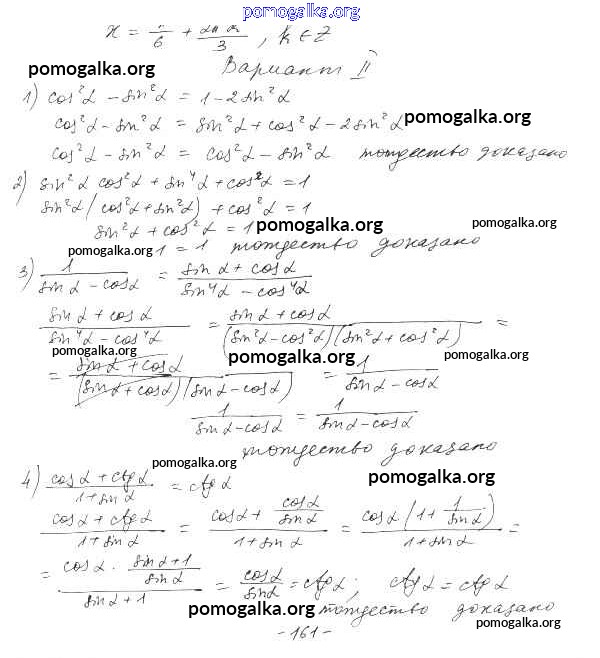 pomogalka.org
x = π/6 + 2πk/3 , k ∈ Z
pomogalka.org Вариант II
1) cos²α − sin²α = 1 − 2sin²α
cos²α − sin²α = sin²α + cos²α − 2sin²α pomogalka.org
cos²α − sin²α = cos²α − sin²α тождество доказано
2) sin²α cos²α + sin⁴α + cos²α = 1
sin²α (cos²α + sin²α) + cos²α = 1
sin²α + cos²α = 1 pomogalka.org pomogalka.org
pomogalka.org 1 = 1 тождество доказано
3) 1/(sin α − cos α) = (sin α + cos α)/(sin⁴α − cos⁴α)
(sin α + cos α)/(sin⁴α − cos⁴α) = (sin α + cos α)/((sin²α − cos²α)(sin²α + cos²α)) =
pomogalka.org pomogalka.org pomogalka.org
= (sin α + cos α)/((sin α + cos α)(sin α − cos α)) = 1/(sin α − cos α)
1/(sin α − cos α) = 1/(sin α − cos α)
тождество доказано
pomogalka.org pomogalka.org
4) (cos α + ctg α)/(1 + sin α) = ctg α
(cos α + ctg α)/(1 + sin α) = (cos α + cos α/sin α)/(1 + sin α) = cos α (1 + 1/sin α)/(1 + sin α) =
= (cos α · (sin α + 1)/sin α)/(sin α + 1) = cos α/sin α = ctg α; ctg α = ctg α
pomogalka.org тождество доказано
pomogalka.org
- 161 -